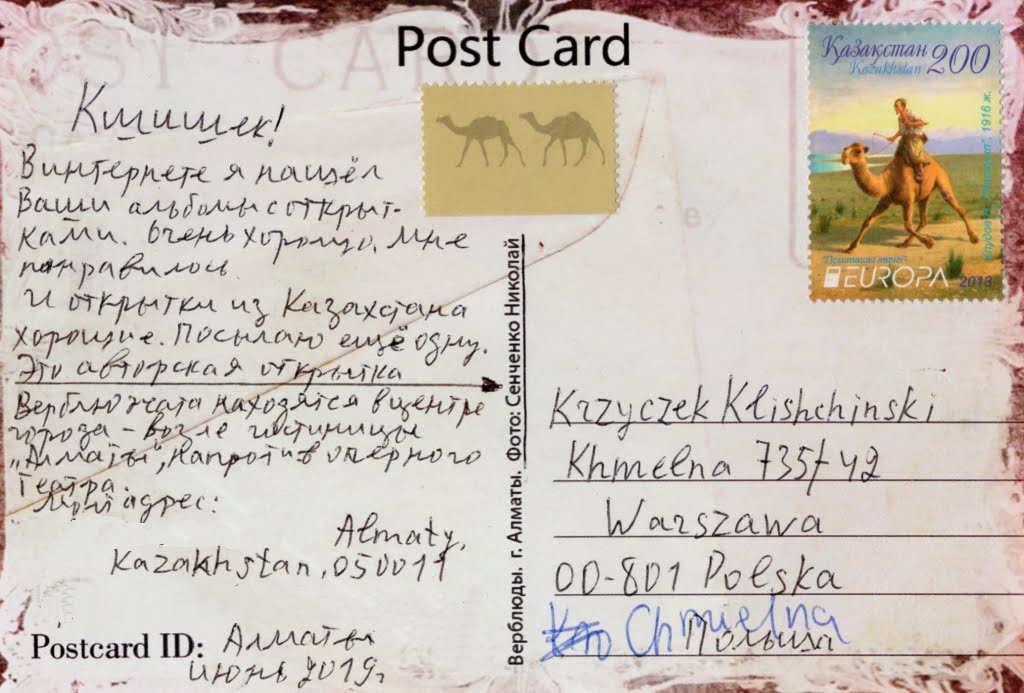 Post Card
Кшишек!
В интернете я нашёл
Ваши альбомы с открыт-
ками. Очень хорошо. Мне
понравилось
И открытки из Казахстана
хорошие. Посылаю ещё одну.
Это авторская открытка
Верблюжата находятся в центре
города - возле гостиницы
"Алматы", напротив оперного
театра.
Мой адрес:
Almaty,
Kazakhstan, 050011
Postcard ID: Алматы
июнь 2019г
Верблюды. г. Алматы. Фото: Сенченко Николай
Қазақстан 200
Kazakhstan
1916 ж.
"Пошташы керуен"
EUROPA 2013
Krzyczek Klishchinski
Khmelna 735/42
Warszawa
00-801 Polska
Chmielna
Польша